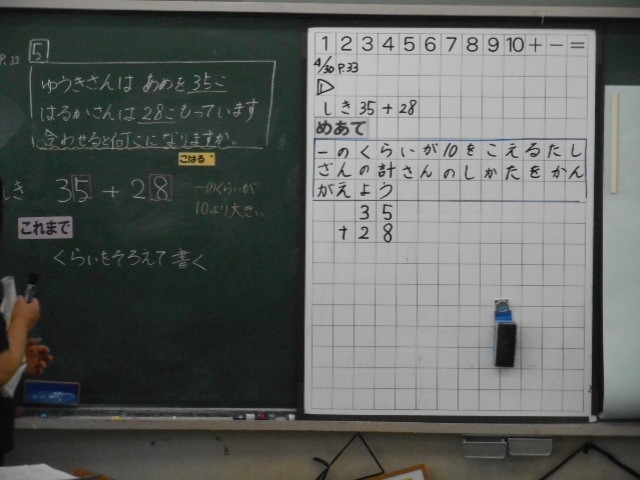 P.33 5
ゆうきさんは あめを 35こ
はるかさんは 28こもっています
合わせると何こになりますか。
こはる
しき 35+28
一のくらいが
10より大きい
これまで
くらいをそろえて書く
1 2 3 4 5 6 7 8 9 10 + - =
4/30 P.33
しき 35+28
めあて
一のくらいが10をこえるたし
ざんの計さんのしかたをかん
がえよう
35
+28